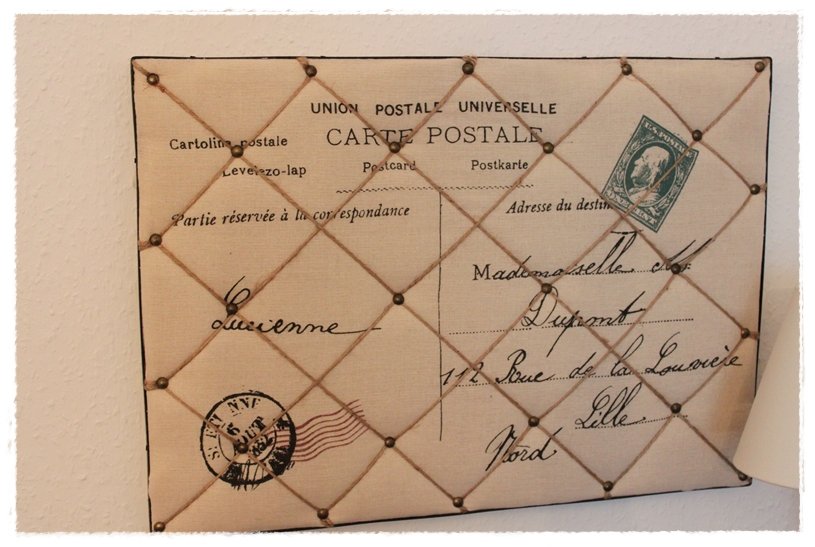 UNION POSTALE UNIVERSELLE
CARTE POSTALE
Cartolina postale
Levelezo-lap
Postcard
Postkarte
Partie réservée à la correspondance
Adresse du destin
U.S. POSTAGE
ONE CENT
Lucienne
Mademoiselle
Dupont
112 Rue de la Louvière
Lille
Nord
6